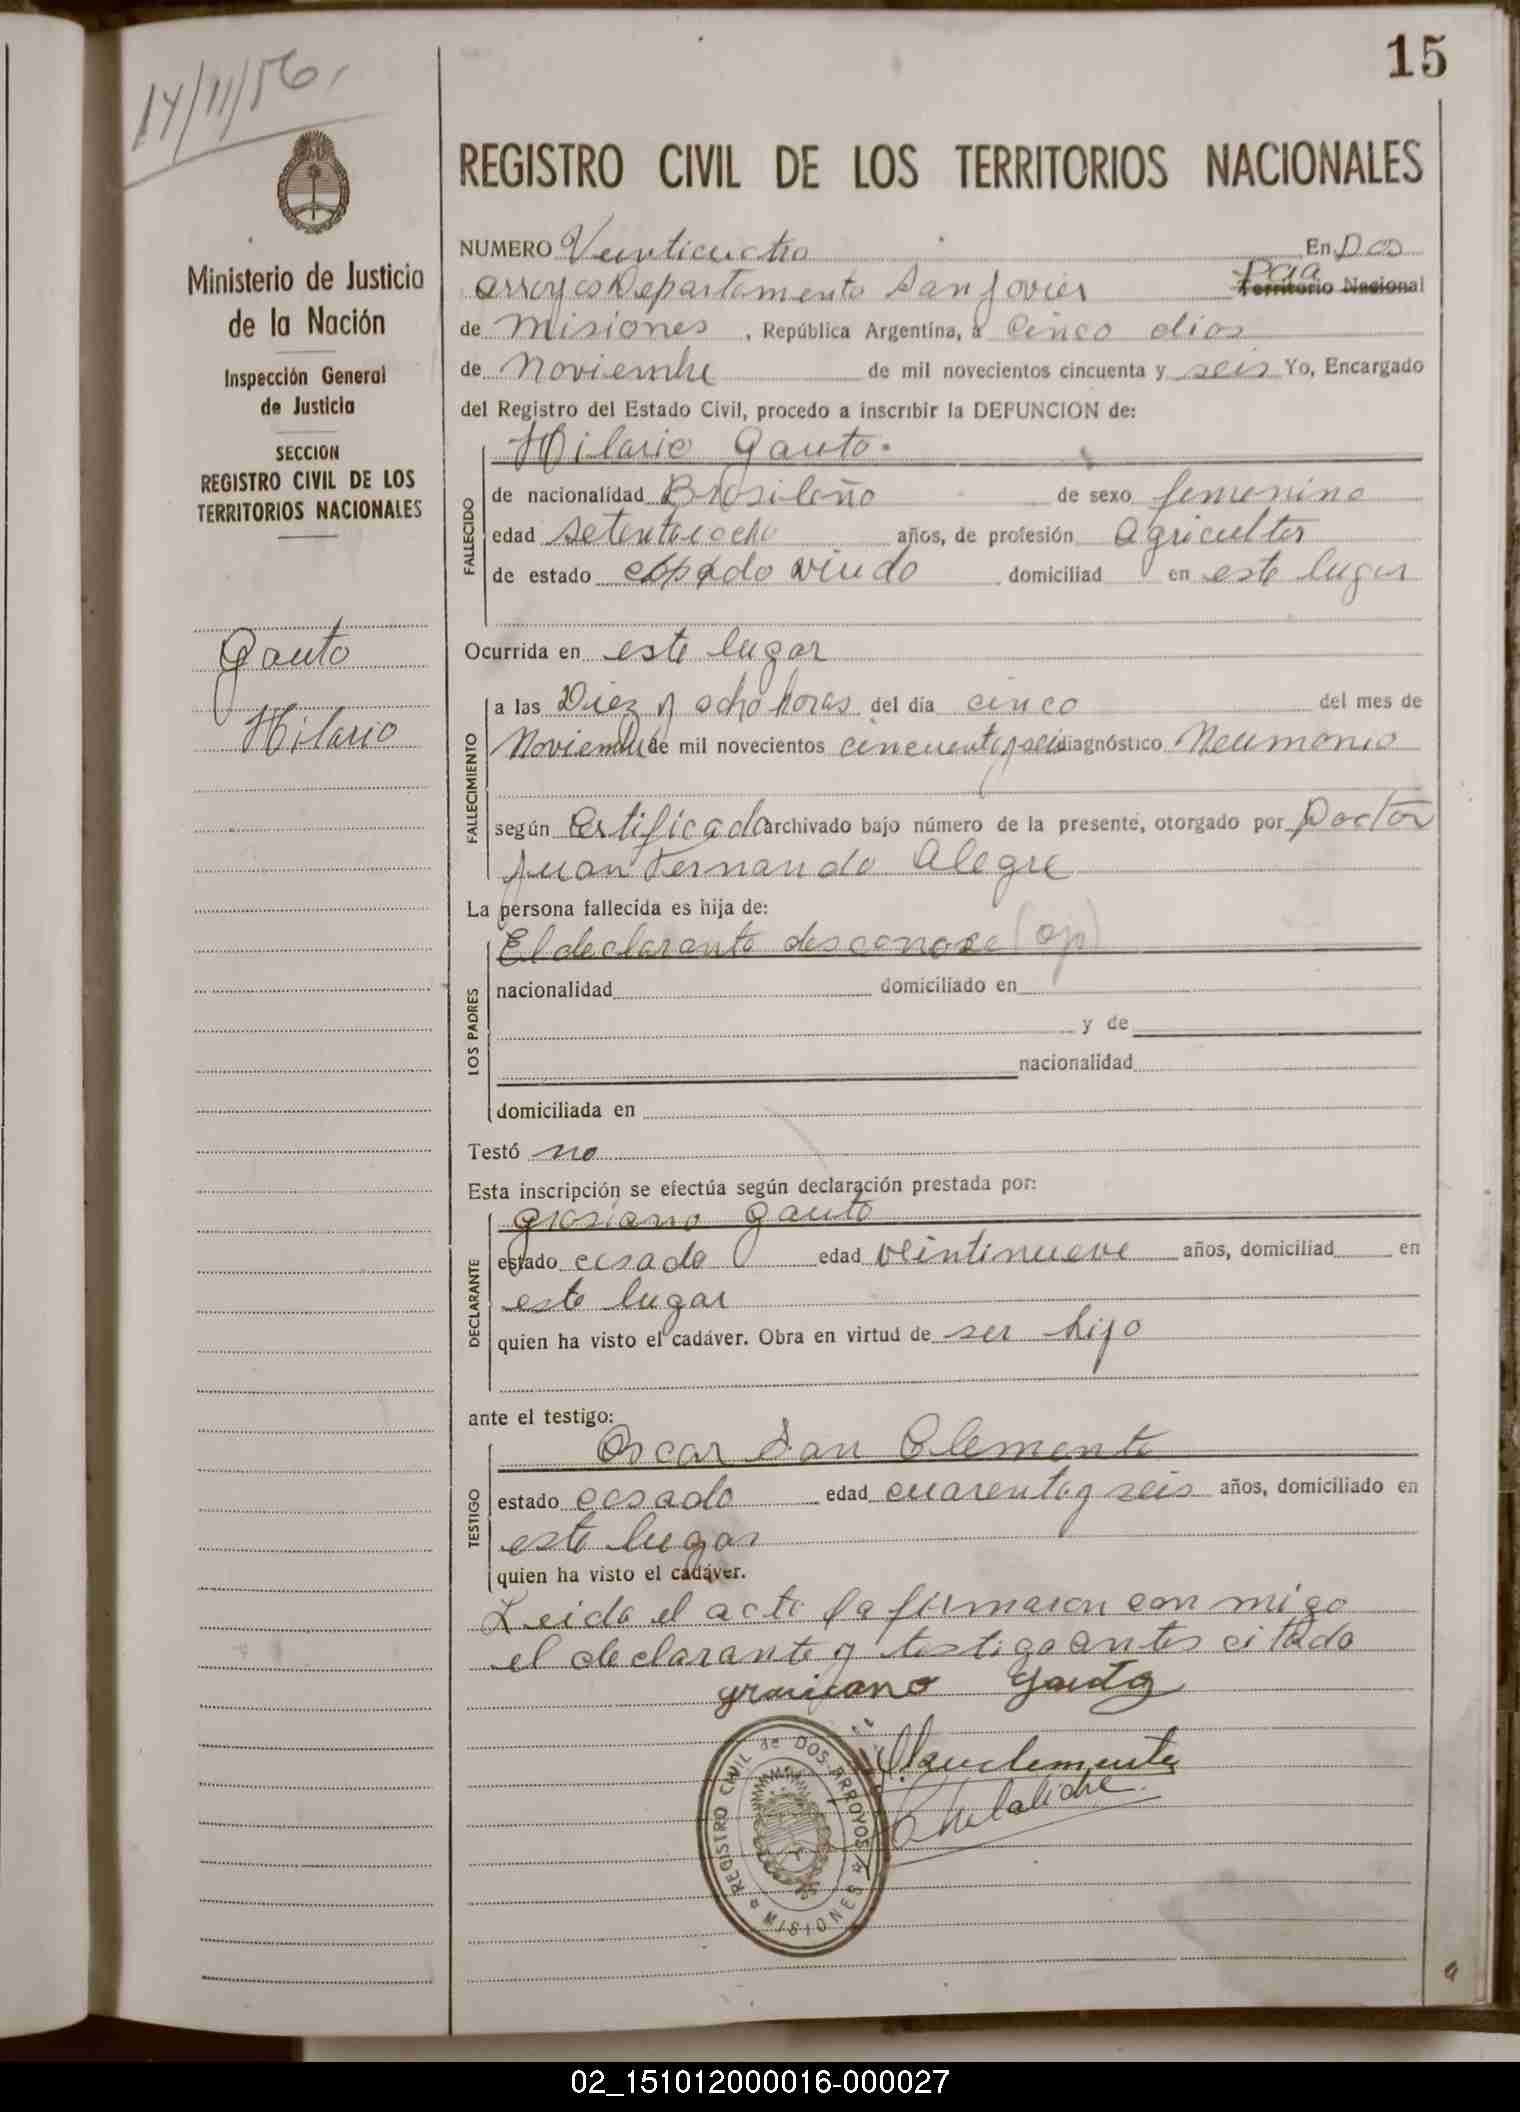 15
14/11/56
REGISTRO CIVIL DE LOS TERRITORIOS NACIONALES
Ministerio de Justicia
de la Nación
Inspección General
de Justicia
SECCION
REGISTRO CIVIL DE LOS
TERRITORIOS NACIONALES
Gauto
Hilario
NUMERO Veinticuatro En Dos
arroyos Departamento San Javier Pcia Territorio Nacional
de Misiones, República Argentina, a cinco dias
de Noviembre de mil novecientos cincuenta y seis Yo, Encargado
del Registro del Estado Civil, procedo a inscribir la DEFUNCION de:
Hilario Gauto.
FALLECIDO
de nacionalidad Brasileño de sexo femenino
edad setentaiocho años, de profesión Agricultor
de estado viudo domiciliad en este lugar
Ocurrida en este lugar
FALLECIMIENTO
a las Diez y ocho horas del día cinco del mes de
Noviembre de mil novecientos cincuenta y seis diagnóstico Neumonia
según Certificado archivado bajo número de la presente, otorgado por Doctor
Juan Fernando Alegre
La persona fallecida es hija de:
LOS PADRES
El declarante desconoce
nacionalidad domiciliado en
y de
nacionalidad
domiciliada en
Testó no
Esta inscripción se efectúa según declaración prestada por:
DECLARANTE
Grasiano Gauto
estado casado edad veintinueve años, domiciliad en
este lugar
quien ha visto el cadáver. Obra en virtud de ser hijo
ante el testigo:
TESTIGO
Oscar San Clemente
estado casado edad cuarenta y seis años, domiciliado en
este lugar
quien ha visto el cadáver.
Leida el acta la firmaron con migo
el declarante y testigo antes citado
Gauto
Sanclemente
REGISTRO CIVIL de DOS ARROYOS
MISIONES
02_151012000016-000027